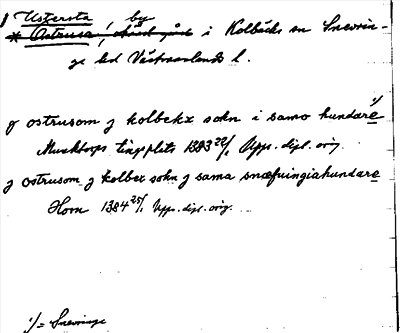 Östersta, by
* Ostrusa, i Kolbäcks sn Snevrin-
ge hd Västmanlands l.
ȝ ostrusom ȝ kolbekx sokn i samo hundare 1/
Munktorps tingplats 1383 22/1 Upps. dipl. orig.
ȝ ostrusom ȝ kolbex sokn ȝ sama snæfuingiahundare
Horn 1384 25/1 Upps. dipl. orig.
1/ = Snevringe